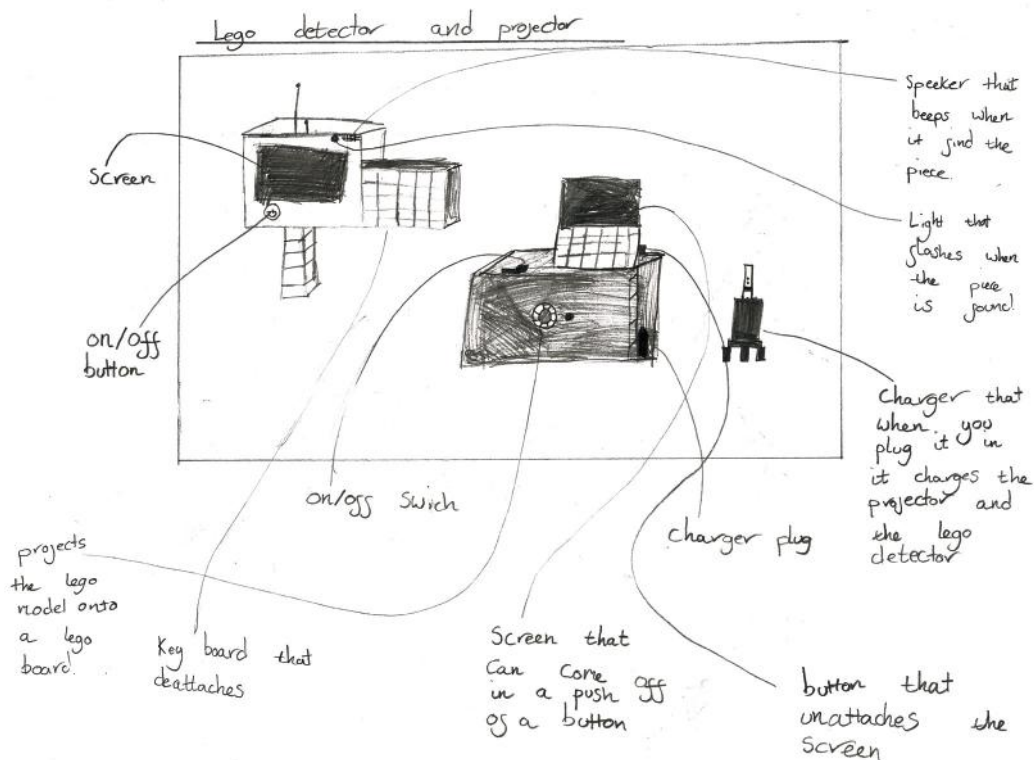 Lego detector and projector
Speeker that
beeps when
it find the
piece.
Screen
Light that
flashes when
the piece
is found!
on/off
button
Charger that
when you
plug it in
it charges the
projector and
the lego
detector
on/off Swich
Charger plug
projects
the lego
model onto
a lego
board.
Key board that
deattaches
Screen that
Can come off
in a push
of a button
button that
unattaches the
Screen